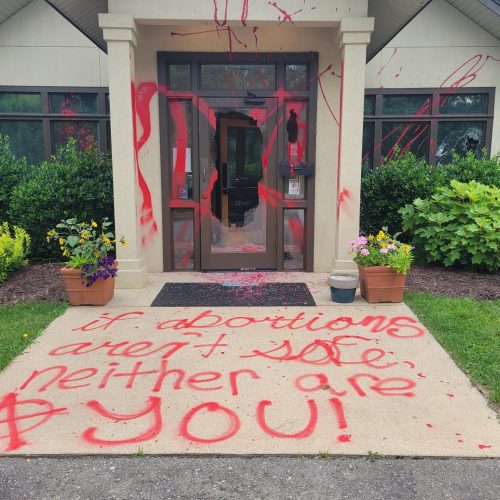 if abortions
aren't safe,
neither are
you!